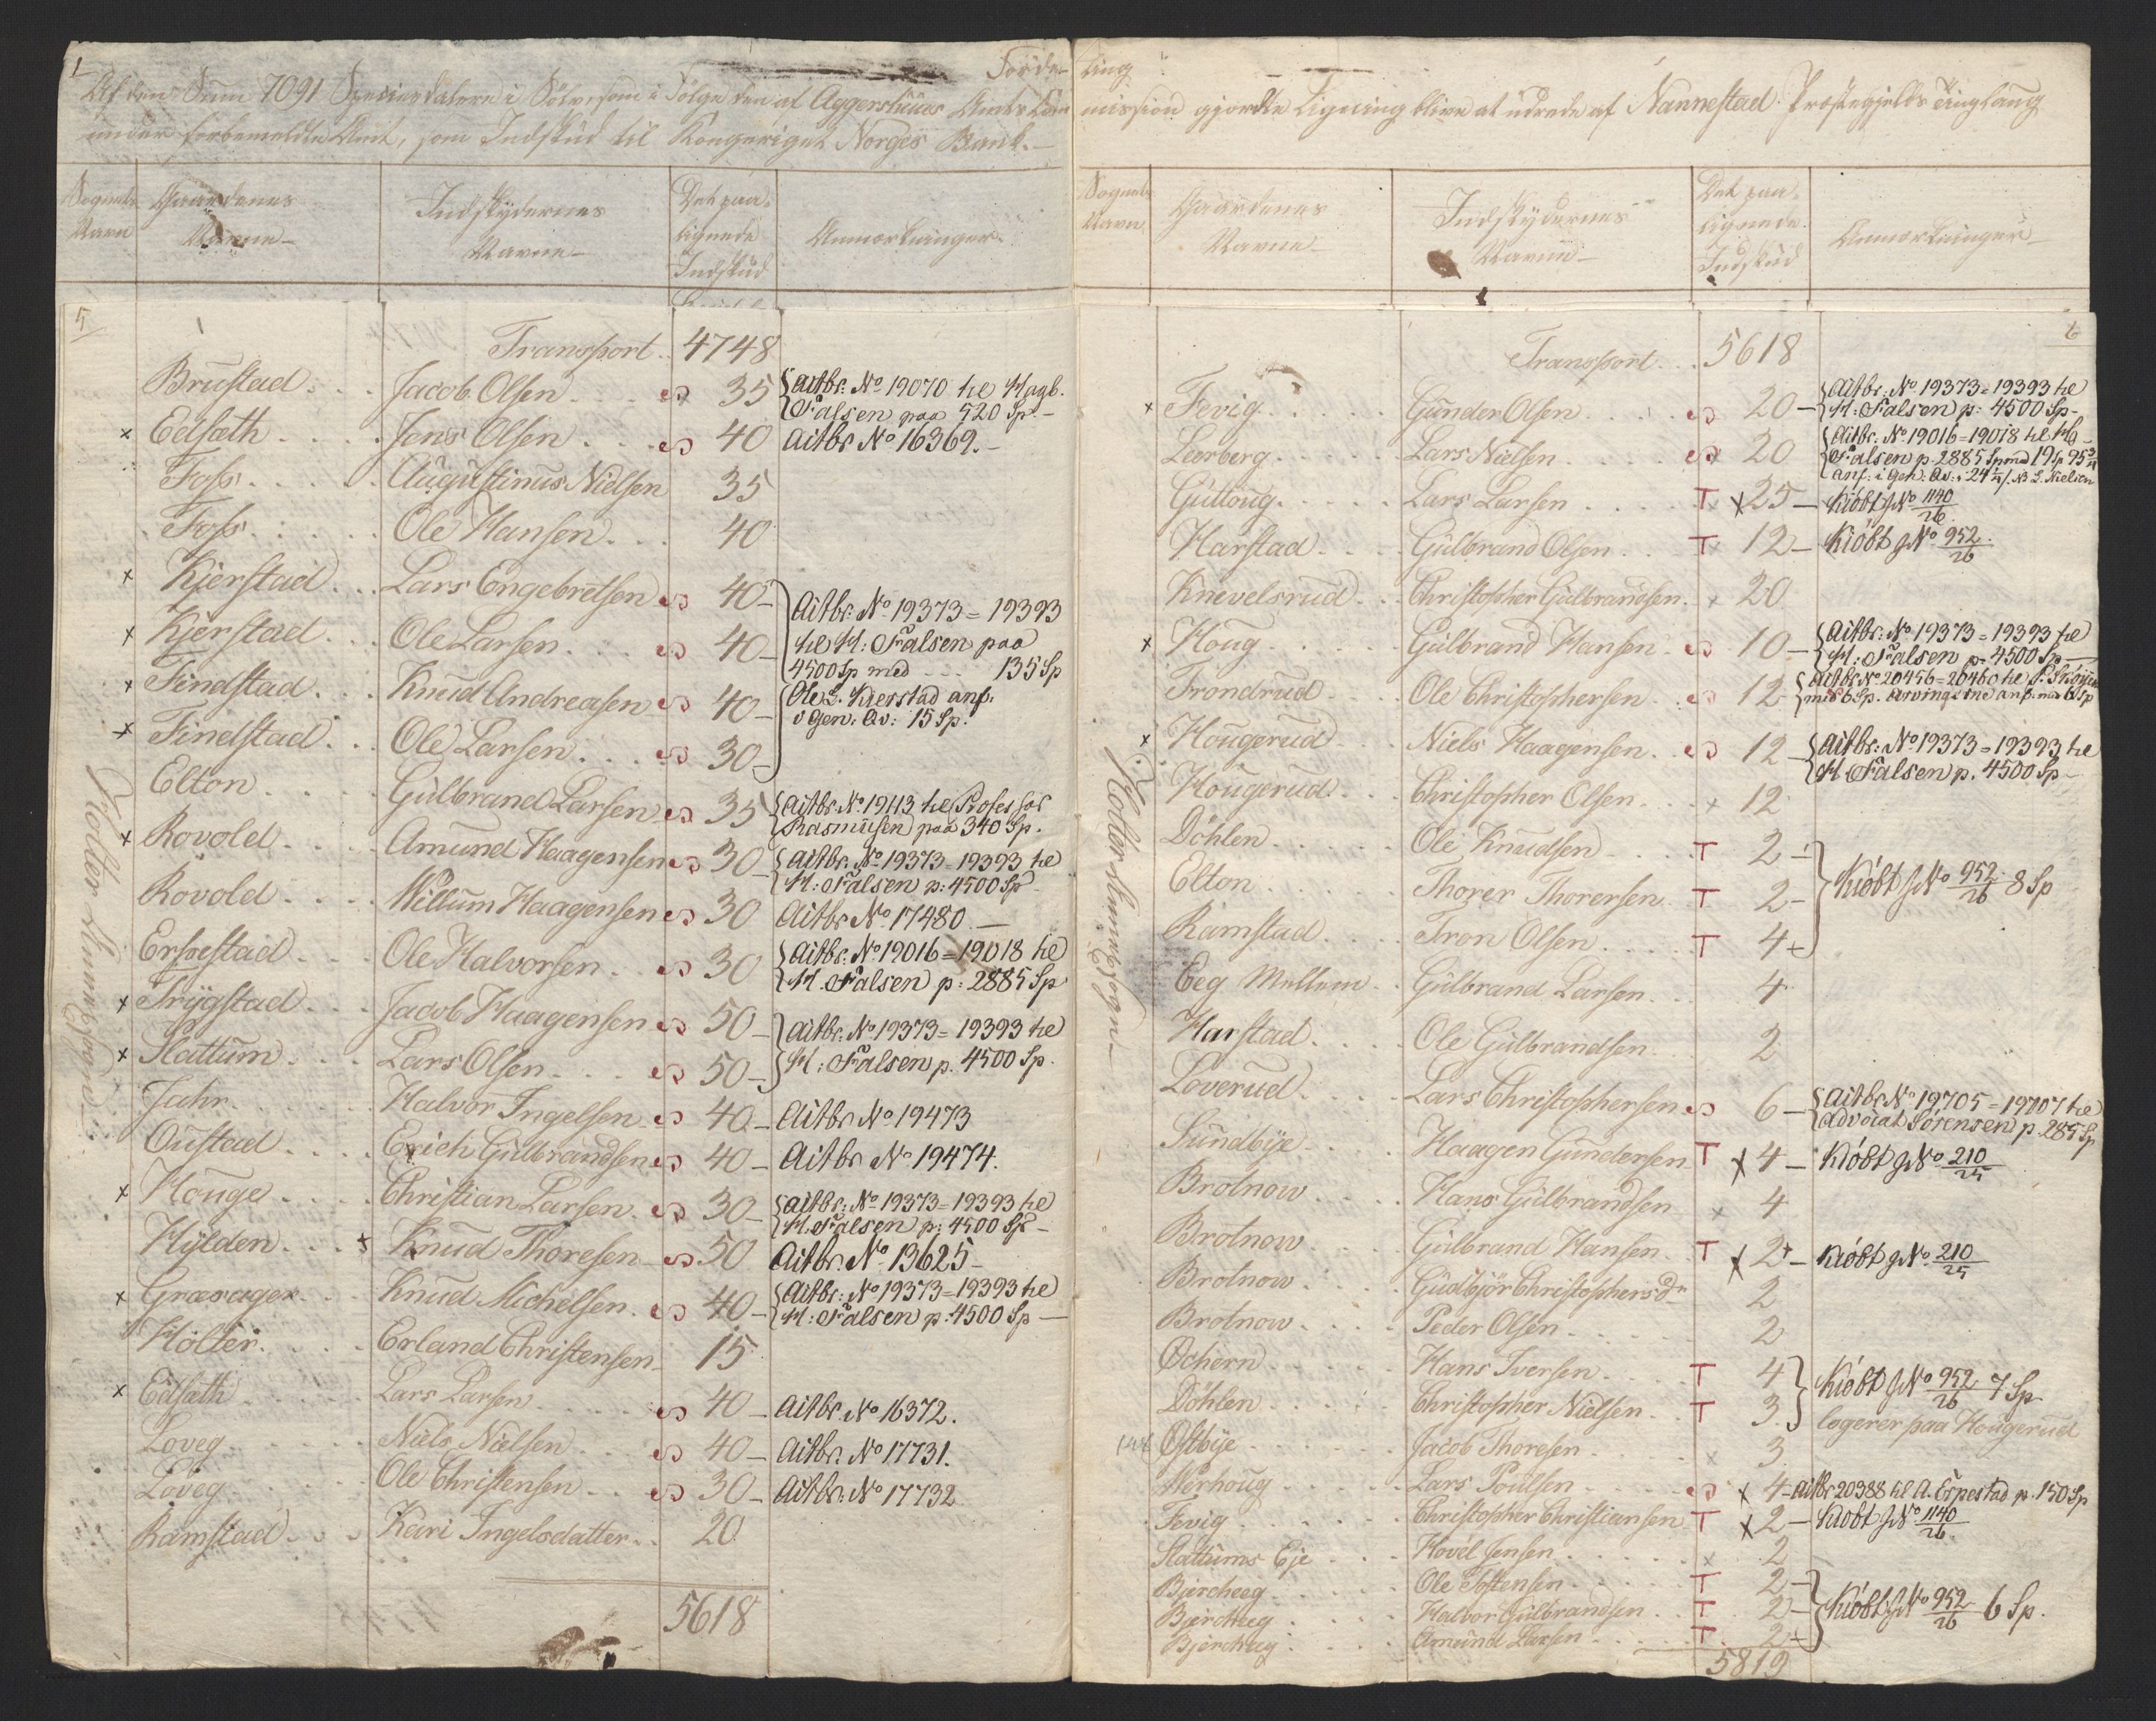 1
Fordeling
Af den Sum 7091 Speciesdalere i Sølv, som i Følge den af Aggershuus Amts Commission gjordte Ligning blive at udrede af Nannestad Præstegjelds Tinglaug
under forbemeldte Amt, som Indskud til Kongeriget Norges Bank.
Sognets Navn
Gaardenes Navne
Indskydernes Navne
Det paalignede Indskud
Anmærkninger
5
Holter Annex Sogn
Transport 4748
Brustad Jacob Olsen 35 Actbr. No 19070 til Hagb. Falsen paa 520 Sp.
x Eelsæth Jens Olsen 40 Actbr No 16369.
Foss Augustinus Nielsen 35
Foss Ole Hansen 40
x Kjerstad Lars Engebretsen 40
x Kjerstad Ole Larsen 40
x Findstad Knud Andreasen 40
x Findstad Ole Larsen 30
Actbr. No 19373=19393
til H: Falsen paa
4500 Sp med 135 Sp
Ole L. Kierstad anf.
i Gen: Qv: 15 Sp.
Elton Gulbrand Larsen 35 Actbr No 19113 til Professor Rasmusen paa 340 Sp.
x Rovold Amund Haagensen 30 Actbr. No 19373=19393 til H: Falsen p: 4500 Sp
Rovold Willum Haagensen 30 Actbr No 17480.
Erpestad Ole Halvorsen 30 Actbr. No 19016=19018 til H. Falsen p: 2885 Sp
x Trygstad Jacob Haagensen 50
x Slattum Lars Olsen 50
Actbr. No 19373=19393 til
H: Falsen p. 4500 Sp.
Jahr Halvor Ingelsen 40 Actbr No 19473
Oustad Erich Gulbrandsen 40 Actbr No 19474.
x Houge Christian Larsen 30 Actbr: No 19373=19393 til H. Falsen p: 4500 Sp
Hylden Knud Thoresen 50 Actbr No 13625
x Græsager Knud Michelsen 40 Actbr: No 19373=19393 til H: Falsen p: 4500 Sp
Holter Erland Christensen 15
x Eelsæth Lars Larsen 40 Actbr. No 16372.
Løveg Niels Nielsen 40 Actbr. No 17731.
Løveg Ole Christensen 30 Actbr. No 17732
Ramstad Kari Ingelsdatter 20
5618
Sognets Navn
Gaardenes Navne
Indskydernes Navne
Det paalignede Indskud
Anmærkninger
6
Holter Annex Sogn
Transport 5618
x Fevig Gunder Olsen 20 Actbr. No 19373=19393 til H: Falsen p: 4500 Sp
Leerberg Lars Nielsen 20 Actbr. No 19016=19018 til H. Falsen p. 2885 Sp med 19 Sp 95 3/4 anf: i Gen: Qv: 24 1/4 s. NB L. Nielsen
Guttoug Lars Larsen T x 25 Kiøbt g No 1140/26
Harstad Gulbrand Olsen T 12 Kiøbt g No 952/26
Knevelsrud Christopher Gulbrandsen x 20
x Houg Gulbrand Hansen 10 Actbr: No 19373=19393 til H: Falsen p. 4500 Sp
Trondrud Ole Christophersen 12 Actbr No 20456=20460 til med 6 Sp. Arvingerne anf. med 6 Sp
x Hougerud Niels Haagensen 12 Actbr: No 19373=19393 til H. Falsen p. 4500 Sp
Hougerud Christopher Olsen x 12
Døhlen Ole Knudsen T 2
Elton Thorer Thorersen T 2
Ramstad Tron Olsen T 4
Kiøbt g No 952/26 8 Sp
Eeg Mellem Gulbrand Larsen 4
Harstad Ole Gulbrandsen 2
Løverud Lars Christophersen 6 Actbr No 19705=19707 til Advocat Sørensen p. 285 Sp
Sundbye Haagen Gundersen T x 4 Kiøbt g No 210/25
Brotnow Hans Gulbrandsen x 4
Brotnow Gulbrand Hansen T x 2 Kiøbt g No 210/25
Brotnow Gudbjør Christophersdr 2
Brotnow Peder Olsen 2
Ochern Hans Iversen T 4
Døhlen Christopher Nielsen T 3
Kiøbt g No 952/26 7 Sp.
logerer paa Hougerud
Østbye Jacob Thoresen x 3
Nerhoug Lars Poulsen x 4 Actbr 20388 til A. Erpestad p. 150 Sp
Fevig Christopher Christiansen T x 2 Kiøbt g No 1140/26
Slattums Eje Hovel Jensen x 2
Bjercheeg Ole Tostensen T 2
Bjercheeg Halvor Gulbrandsen T 2
Bjercheeg Amund Larsen T 2
Kiøbt g No 952/26 6 Sp.
5819